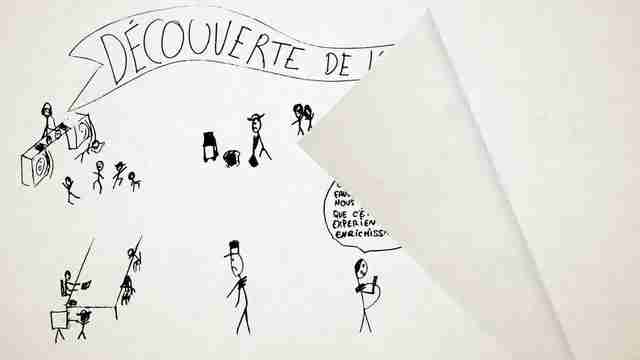 DÉCOUVERTE DE l'
NOUS
QUE C'E
EXPERIEN
ENRICHISS